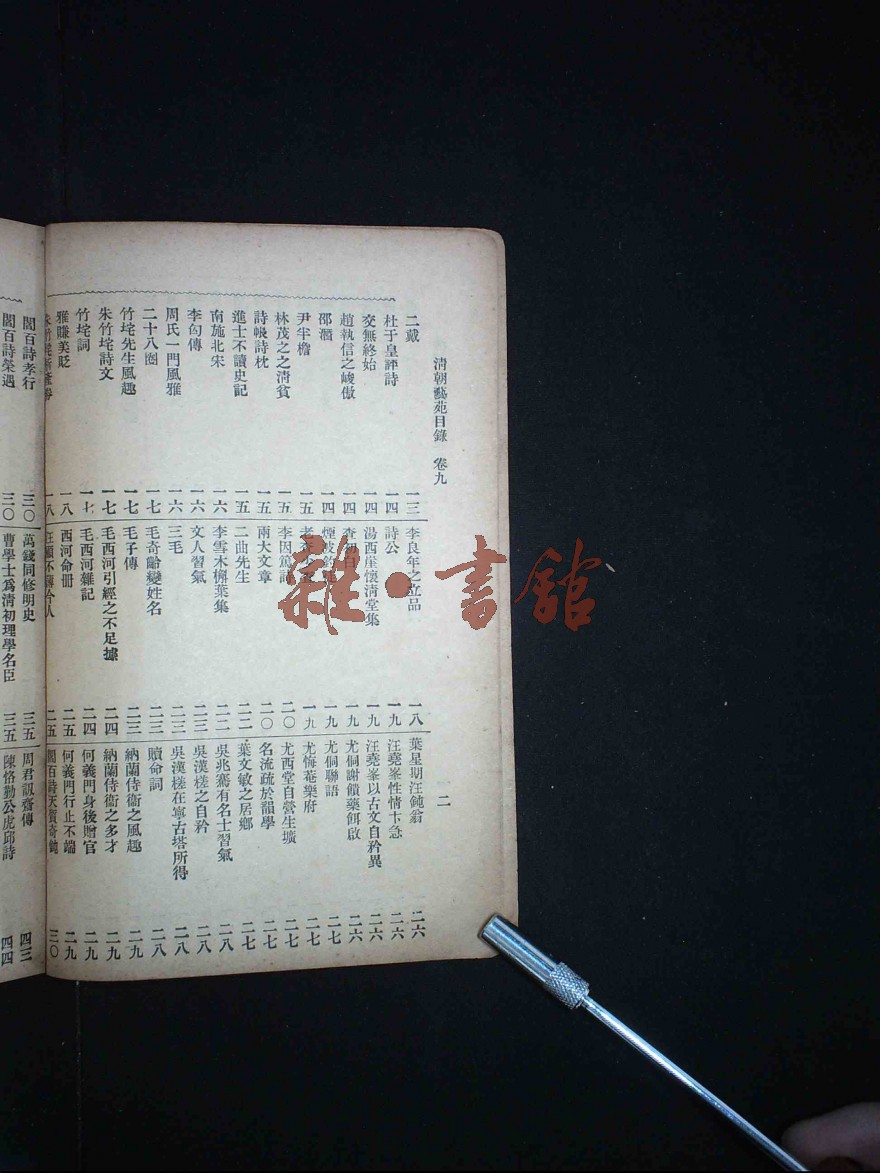 清朝藝苑目錄 卷九
二
二戴 一三
杜于皇評詩 一四
交無終始 一四
趙執信之峻傲 一四
邵潛 一四
尹半檐 一五
林茂之之清貧 一五
詩帳詩枕 一五
進士不讀史記 一五
南施北宋 一六
李匃傳 一六
周氏一門風雅 一六
二十八圈 一七
竹垞先生風趣 一七
朱竹垞詩文 一七
竹垞詞 一七
雅賺美貶 一八
朱竹垞析產券 一八
李良年之立品 一八
詩公 一九
湯西崖懷清堂集 一九
查初白 一九
煙波釣徒 一九
老查 一九
李因篤 二〇
兩大文章 二〇
二曲先生 二二
李雪木槲葉集 二二
文人習氣 二三
三毛 二三
毛奇齡變姓名 二三
毛子傳 二三
毛西河引經之不足據 二四
毛西河雜記 二四
西河命冊 二五
不傳今人 二五
葉星期汪鈍翁 二六
汪堯峯性情卞急 二六
汪堯峯以古文自矜異 二六
尤侗謝饋藥餌啟 二六
尤侗聯語 二七
尤悔菴樂府 二七
尤西堂自營生壙 二七
名流疏於韻學 二七
葉文敏之居鄉 二七
吳兆騫有名士習氣 二八
吳漢槎之自矜 二八
吳漢槎在寧古塔所得 二八
贖命詞 二八
納蘭侍衞之風趣 二九
納蘭侍衞之多才 二九
何義門身後贈官 二九
何義門行止不端 二九
閻百詩天賀奇鈍 三〇
閻百詩孝行 三〇
閻百詩榮遇 三〇
萬錢同修明史 三五
曹學士爲清初理學名臣 三五
周君訊齋傳 四三
陳恪勤公虎邱詩 四四
雜·書館